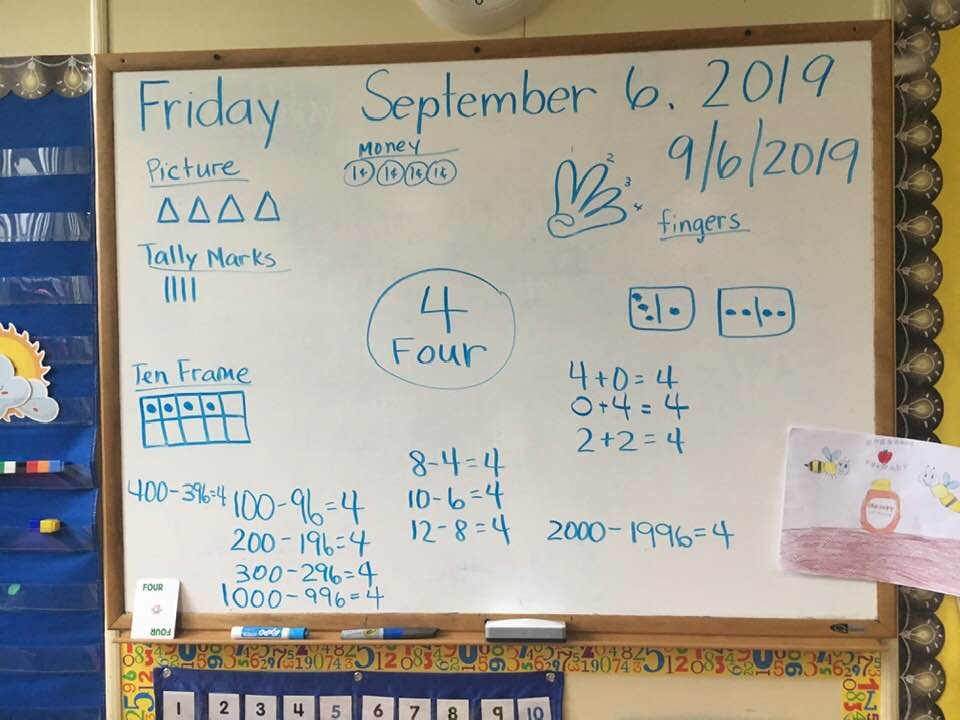 Friday September 6. 2019
9/6/2019
Picture
Money
1¢ 1¢ 1¢ 1¢
1 2 3 4
fingers
Tally Marks
4
Four
Ten Frame
4+0=4
0+4=4
2+2=4
8-4=4
10-6=4
12-8=4
400-396=4
100-96=4
200-196=4
300-296=4
1000-996=4
2000-1996=4
FOUR
FOUR
EXPO
1 2 3 4 5 6 7 8 9 10